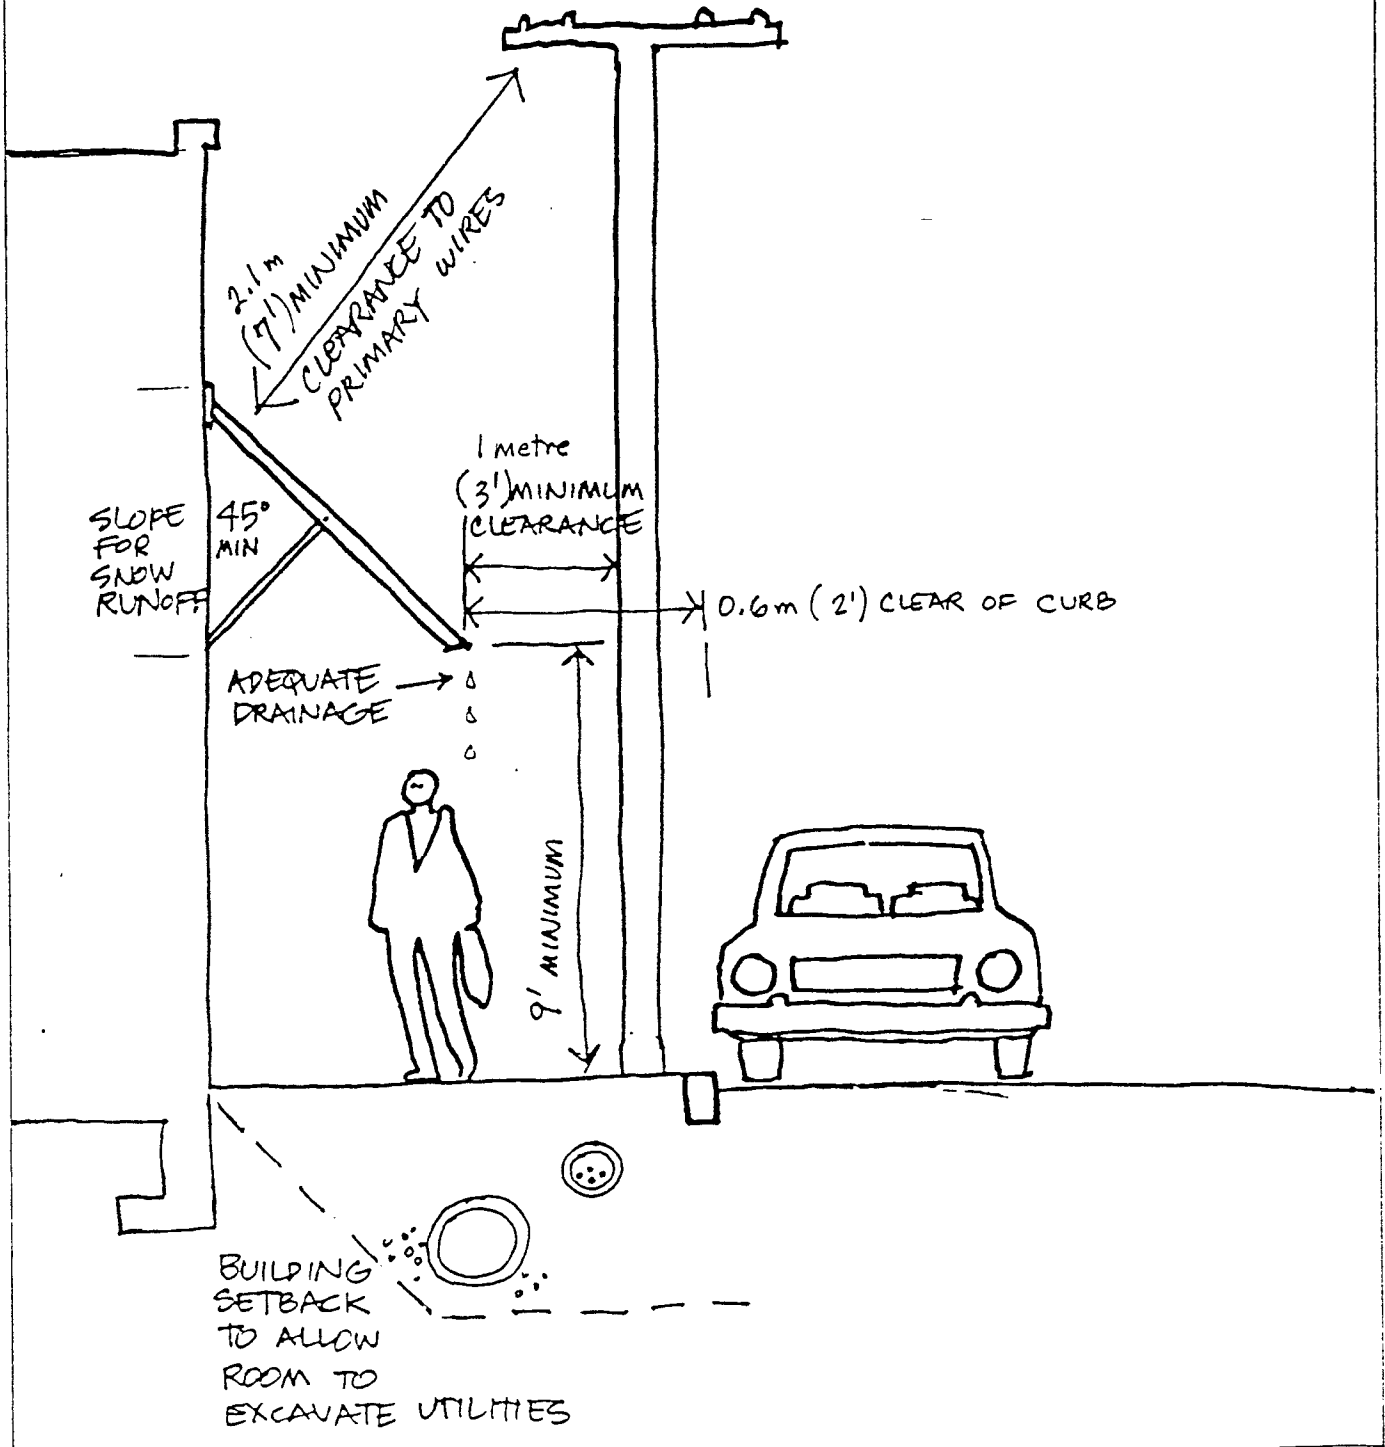 2.1m
(7')MINIMUM
CLEARANCE TO
PRIMARY WIRES
1 metre
(3')MINIMUM
CLEARANCE
SLOPE
FOR
SNOW
RUNOFF
45°
MIN
0.6m (2') CLEAR OF CURB
ADEQUATE
DRAINAGE
9' MINIMUM
BUILDING
SETBACK
TO ALLOW
ROOM TO
EXCAVATE UTILITIES